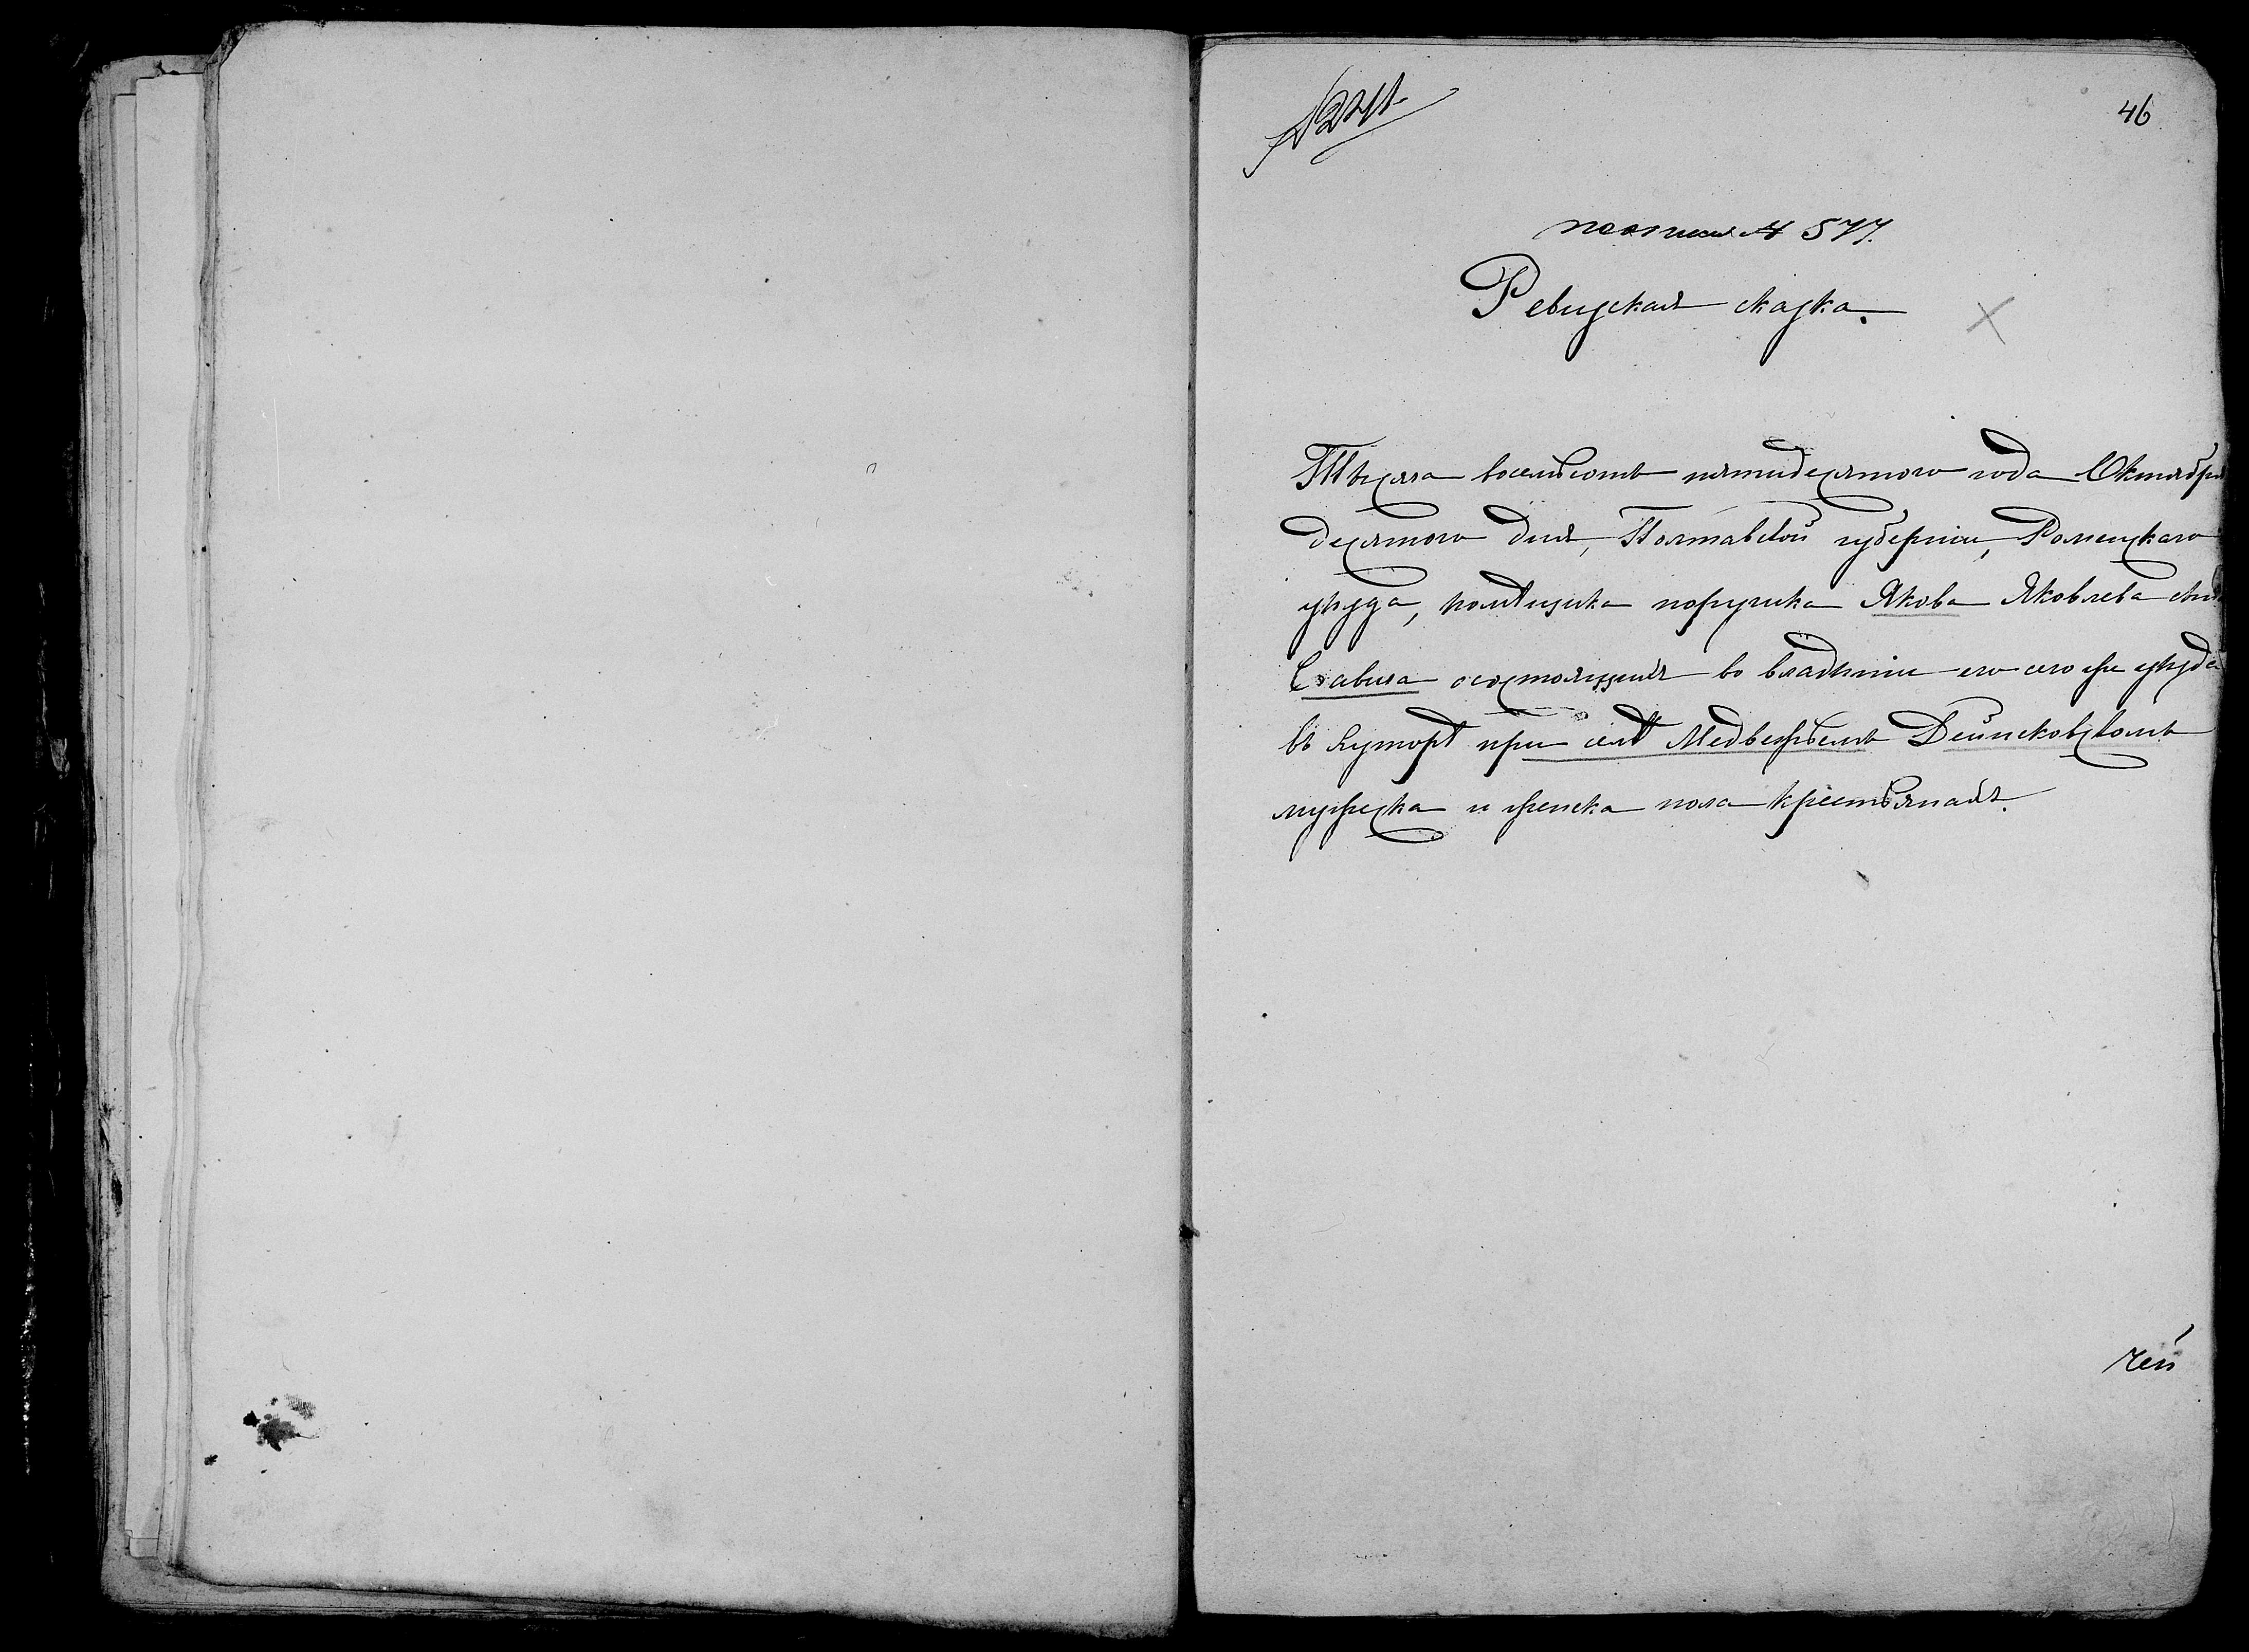 46
по описи № 577.
Ревизская сказка.
Тысяча восемьсотъ пятидесятого года Октября
десятого дня, Полтавской губернии, Роменского
уѣзда, помѣщика поручика Якова Яковлева сына
Савича о состоящихъ во владѣнии его сего же уѣзда
въ хуторѣ при селѣ Медвежьемъ Дейнековскомъ
мужеска и женска пола крестьянахъ.